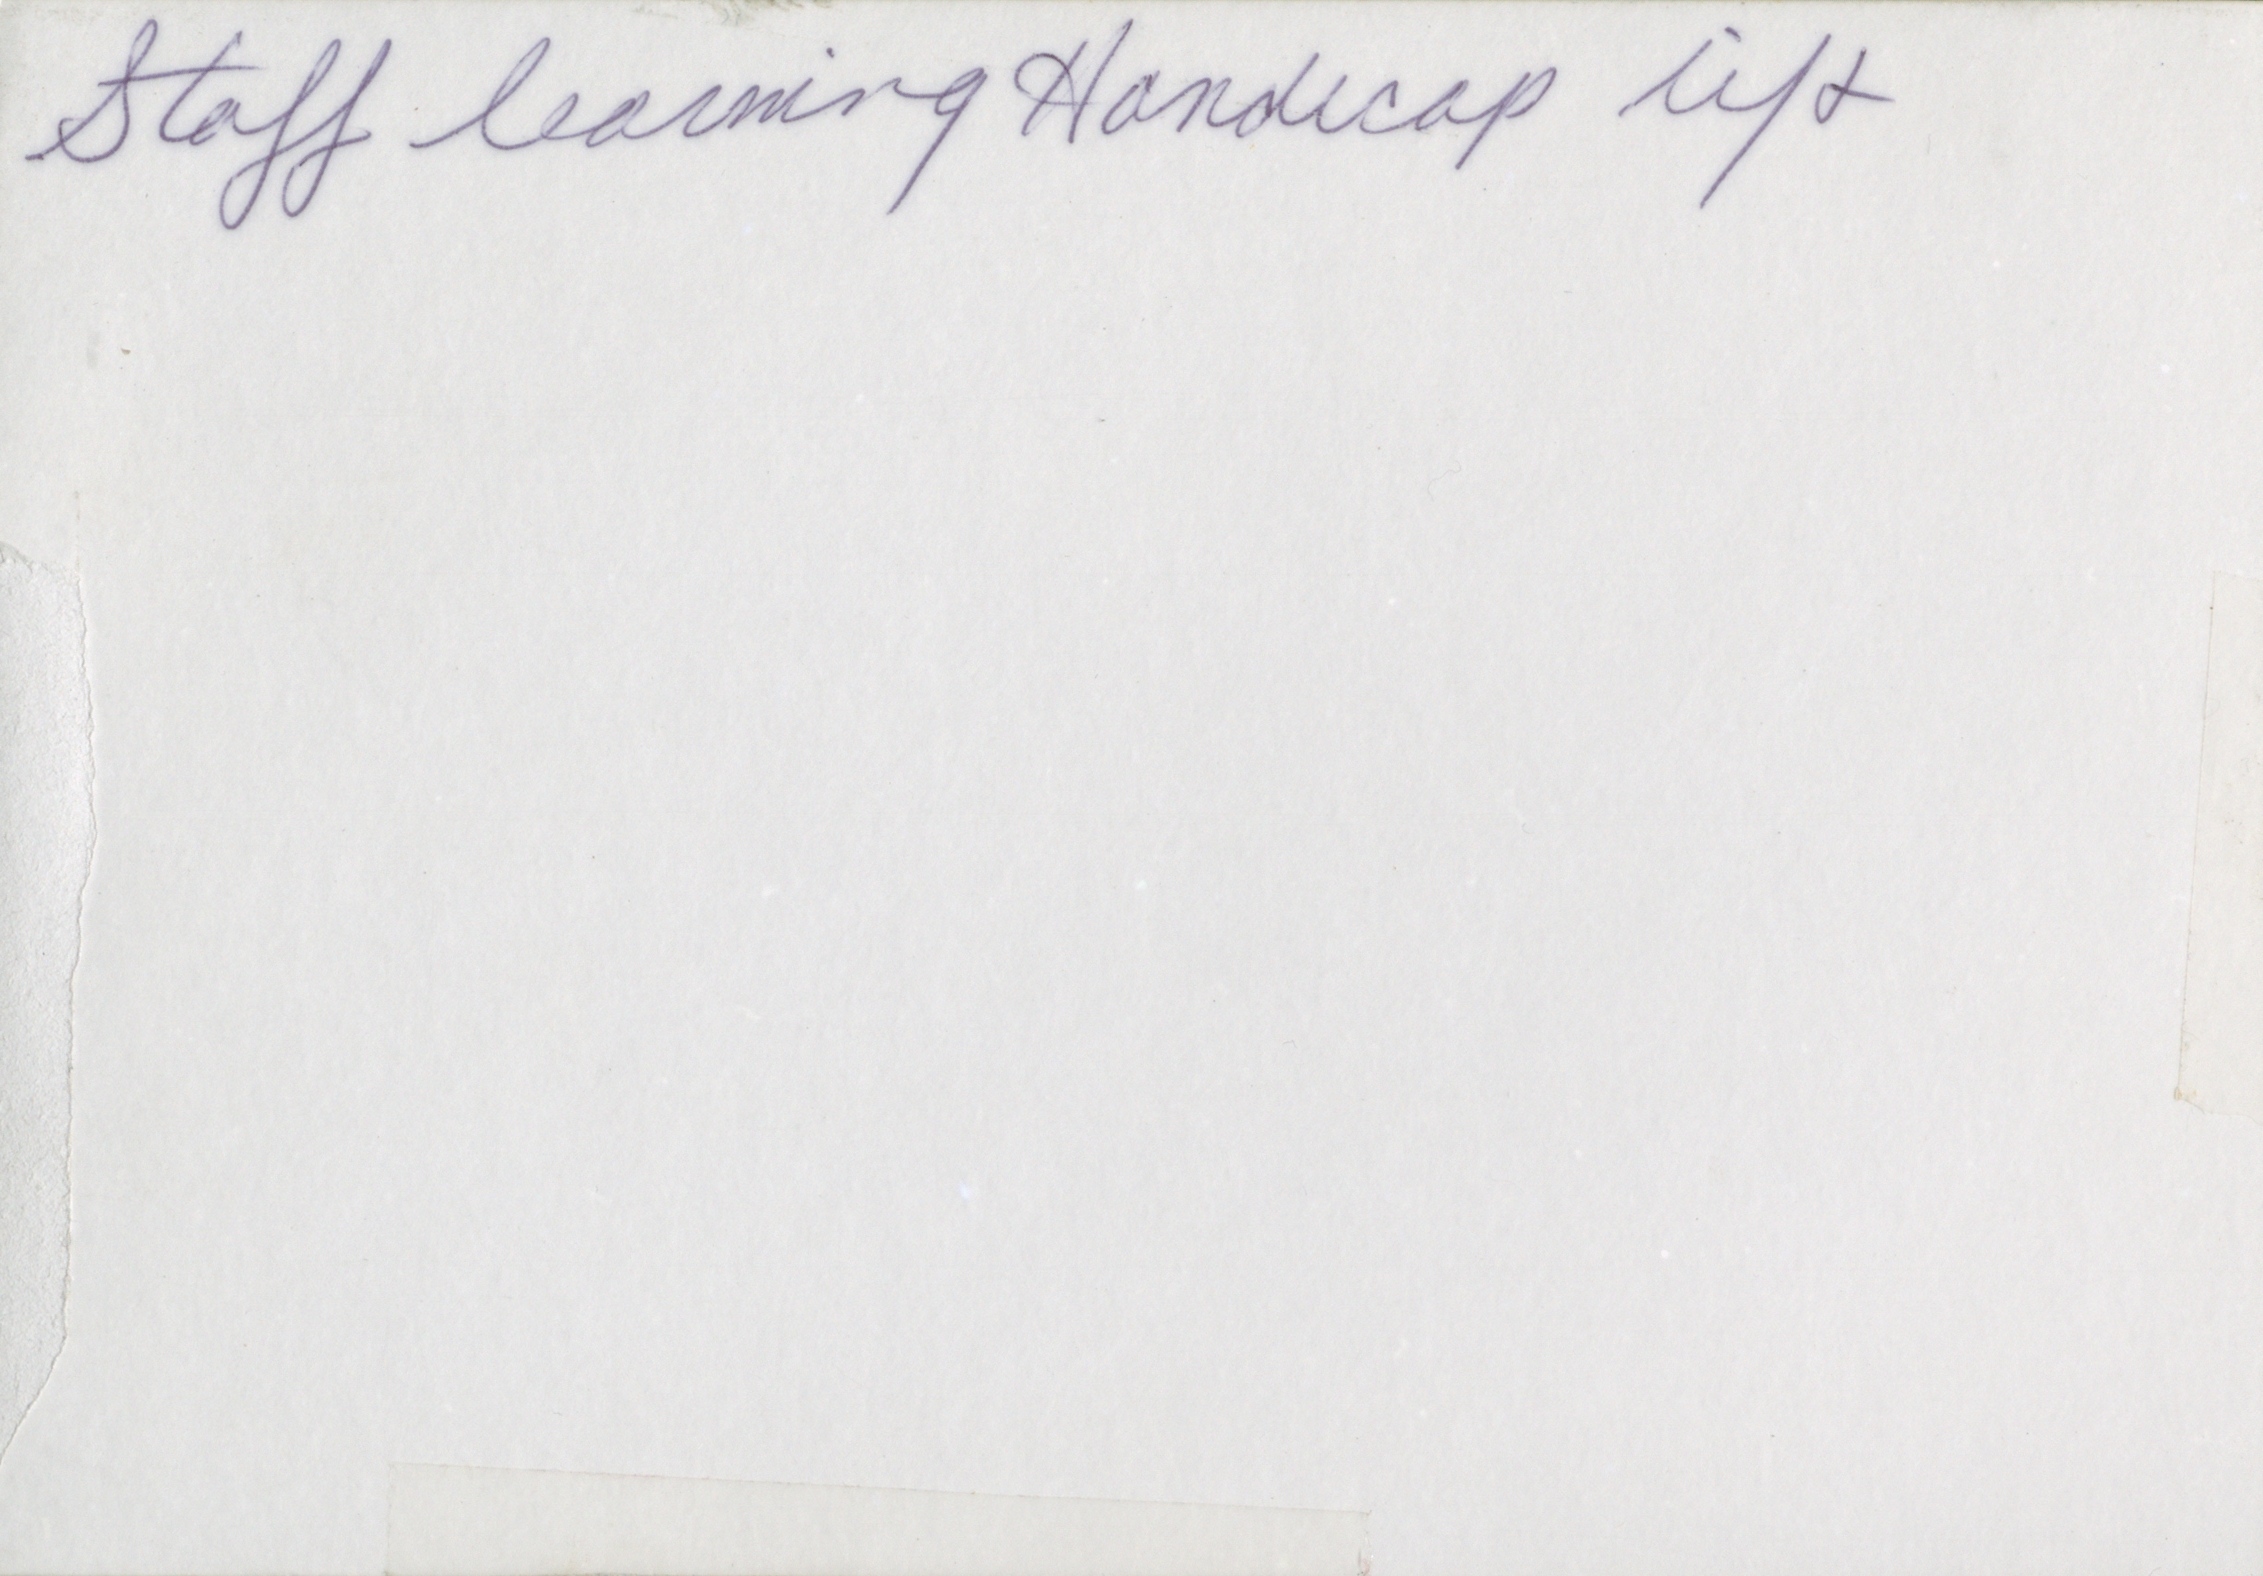 Staff learning Handicap lift